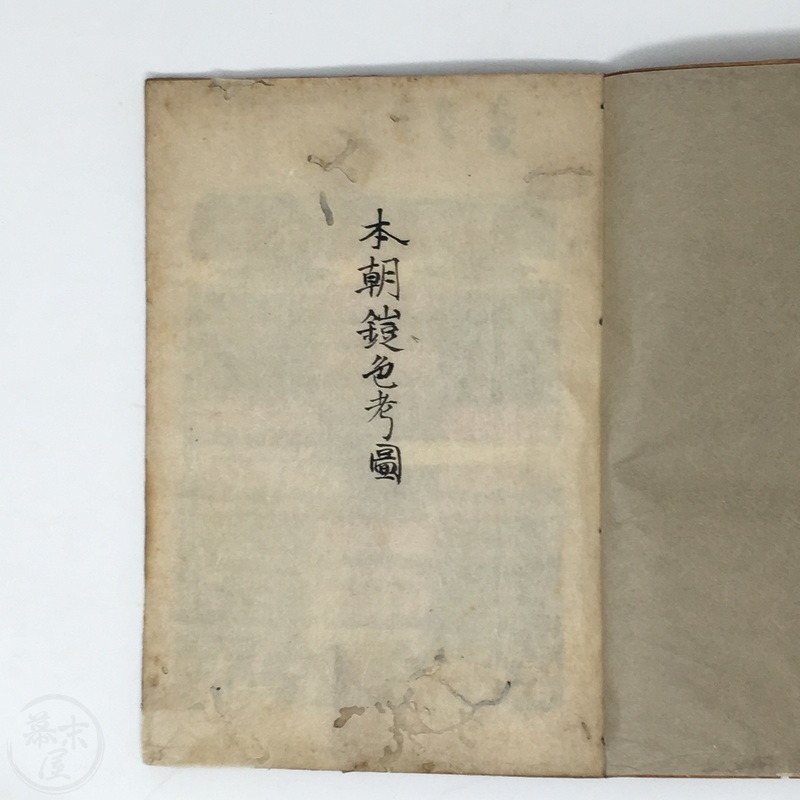 本朝鎧色考圖
幕末屋